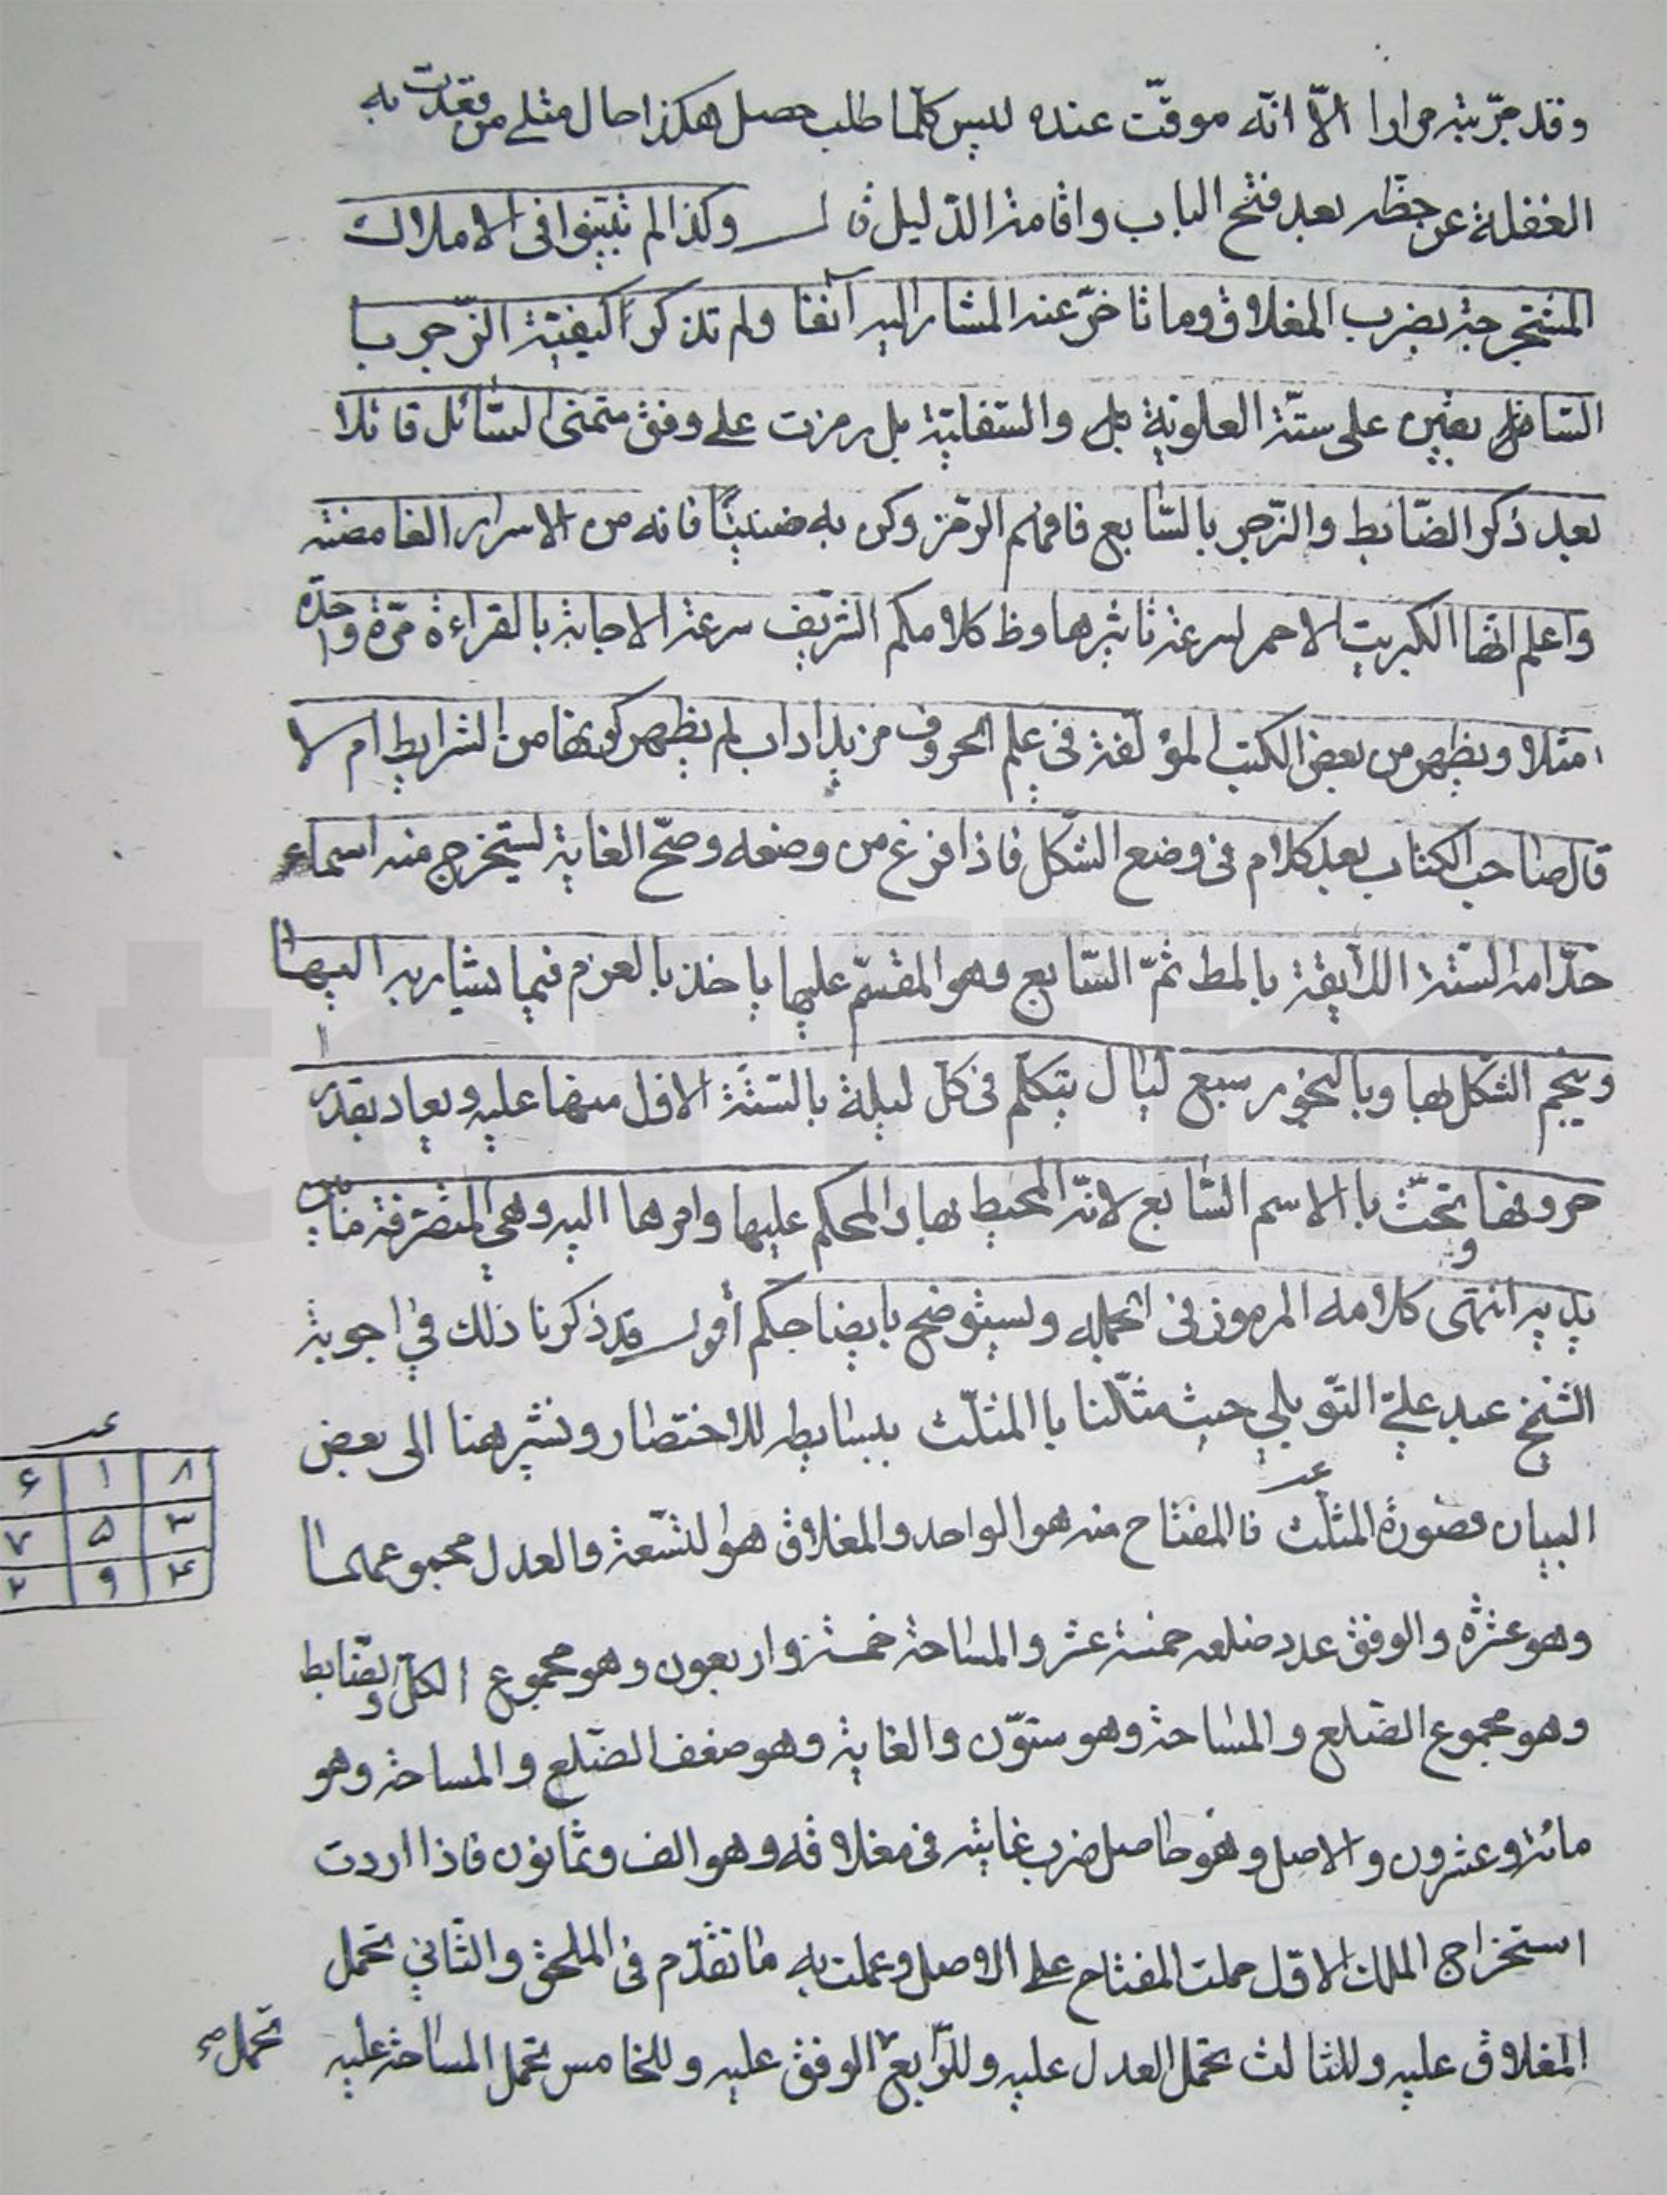 وقد جرّبته مرارا الّا انّه موقّت عنده ليس كلّما طلب حصل هكذا حال مثلي من به
الغفلة عن حظّه بعد فتح الباب واقامة الدّليل قال وكذا لم تبيّنوا فى الاملاك
المستخرجة بضرب المغلاق وما تاخرّ عنه المشار اليه آنفا ولم تذكروا كيفيّة الزّجر با
السّا بعينه على ستّة العلويّة بل والسّفليّة بل رمزت على وفق متمنى السّائل قائلا
بعد ذكر الضّابط والزّجر بالسّابع فافهم الرّمز وكن به ضنينًا فانه من الاسرار الغامضة
واعلم انّها الكبريت الاحمر لسرعة تاثيرها وظ كلامكم الشريف سرعة الاجابة بالقراءة مرّة واحدة
مثلا ويظهر من بعض الكتب المؤلّفة فى علم الحروف مزيد اداب لم يظهر كونها من الشرايط ام لا
قال صاحب الكتاب بعد كلام فى وضع الشّكل فاذا فرغ من وضعه وصحّ الغاية ليستخرج منه اسماء
خدّامه الستّة اللّايقة بالمط ثمّ السّابع وهو المقسّم عليها ياخذ بالعزم فيما يشار به اليها
وينجم الشّكل لها وبالبخور سبع ليال يتكلّم فى كلّ ليلة بالستّة الاول منها عليه ويعاد بقدر
حروفها وتحثّ باالاسم السّابع لانّه المحيط بها والمحكم عليها وامرها اليه وهى المتصرّفة من بين
يديه انتهى كلامه المرموز فى الجمله ونستوضح بايضاحكم أقول قد ذكرنا ذلك في اجوبة
الشيخ عبد عليّ التّوبلي حيث مثّلنا باالمثلّث ببسايط للاختصار ونشير هنا الى بعض
البيان فصورة المثلّث عـد فالمفتاح منه هو الواحد والمغلاق هو التّسعة والعدل مجموعهما
وهو عشره والوفق عدد ضلعه خمسة عشر والمساحة خمسة واربعون وهو مجموع الكلّ والضّابط
وهو مجموع الضّلع والمساحة وهو ستّون والغاية وهو ضعف الضّلع والمساحة وهو
مائة وعشرون والاصل وهو حاصل ضرب غايته فى مغلاقه وهو الف وثمانون فاذا اردت
استخراج الملك الاوّل حملت المفتاح على الاصل وعملت به ما تقدّم فى الملحق والثّاني تحمل
المغلاق عليه وللثالث تحمل العدل عليه وللرّابع الوفق عليه وللخامس تحمل المساحة عليه
تحمل صح
عـد
٨ ١ ۶
٣ ۵ ٧
۴ ٩ ٢